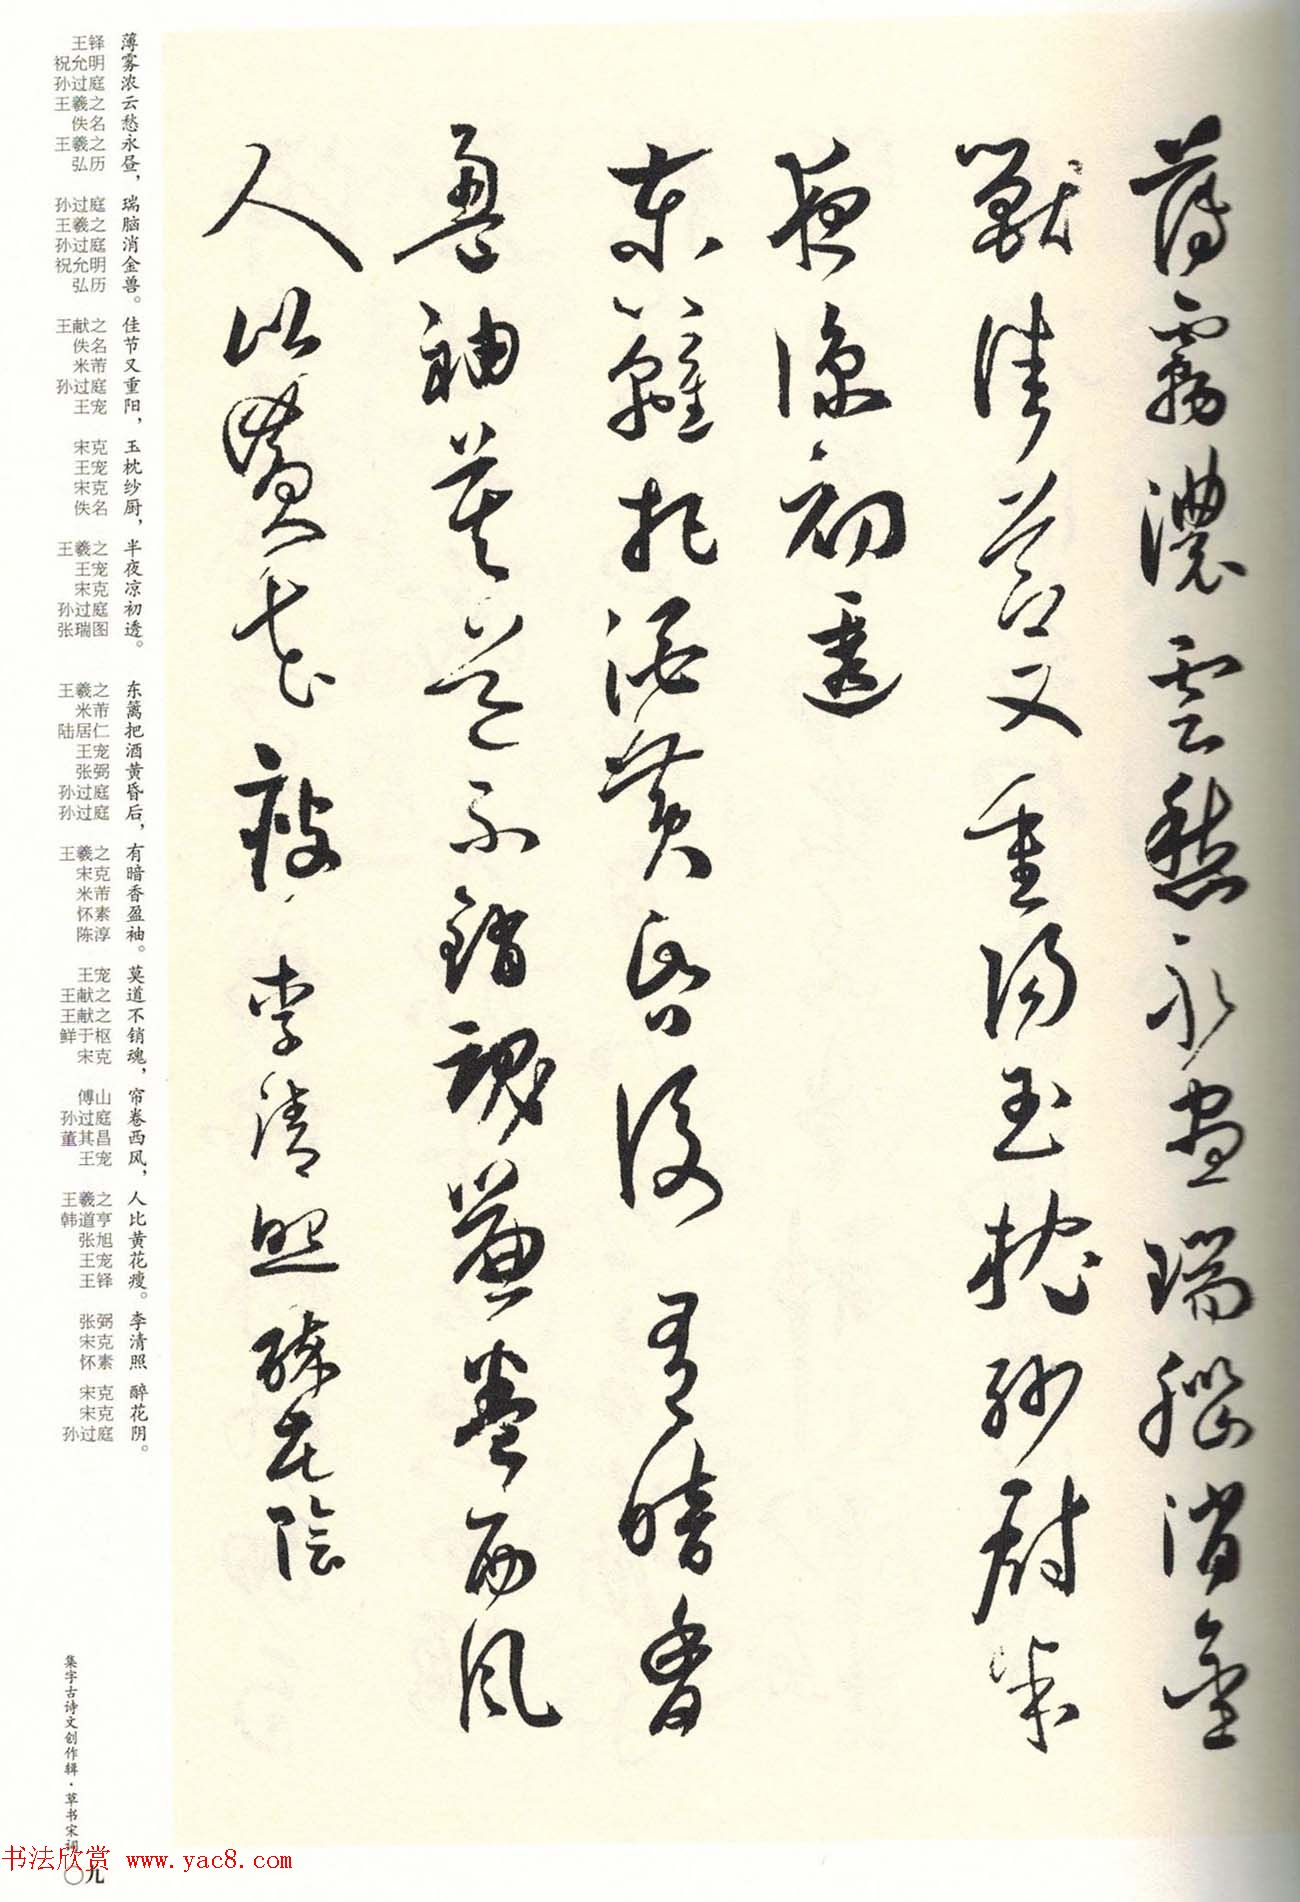 薄霧濃雲愁永晝瑞腦消金
獸佳節又重陽玉枕紗廚半
夜涼初透
東籬把酒黃昏後有暗香
盈袖莫道不銷魂簾卷西風
人比黃花瘦 李清照醉花陰
薄雾浓云愁永昼，瑞脑消金兽。佳节又重阳，玉枕纱厨，半夜凉初透。 东篱把酒黄昏后，有暗香盈袖。莫道不销魂，帘卷西风，人比黄花瘦。李清照 醉花阴。
王铎
祝允明
孙过庭
王羲之
佚名
王羲之
弘历
孙过庭
王羲之
孙过庭
祝允明
弘历
王献之
佚名
米芾
孙过庭
王宠
宋克
王宠
宋克
佚名
王羲之
王宠
宋克
孙过庭
张瑞图
王羲之
米芾
陆居仁
王宠
张弼
孙过庭
孙过庭
王羲之
宋克
米芾
怀素
陈淳
王宠
王献之
王献之
鲜于枢
宋克
傅山
孙过庭
董其昌
王宠
王羲之
韩道亨
张旭
王宠
王铎
张弼
宋克
怀素
宋克
宋克
孙过庭
集字古诗文创作辑·草书宋词
书法欣赏 www.yac8.com
〇九